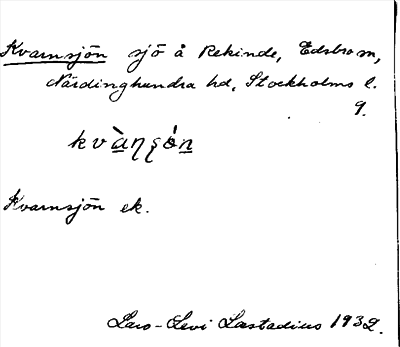 Kvarnsjön sjö å Rekinde, Edsbro sn,
Närdinghundra hd, Stockholms l.
9.
kvàɳʂón
Kvarnsjön ek.
Lars-Levi Læstadius 1932.